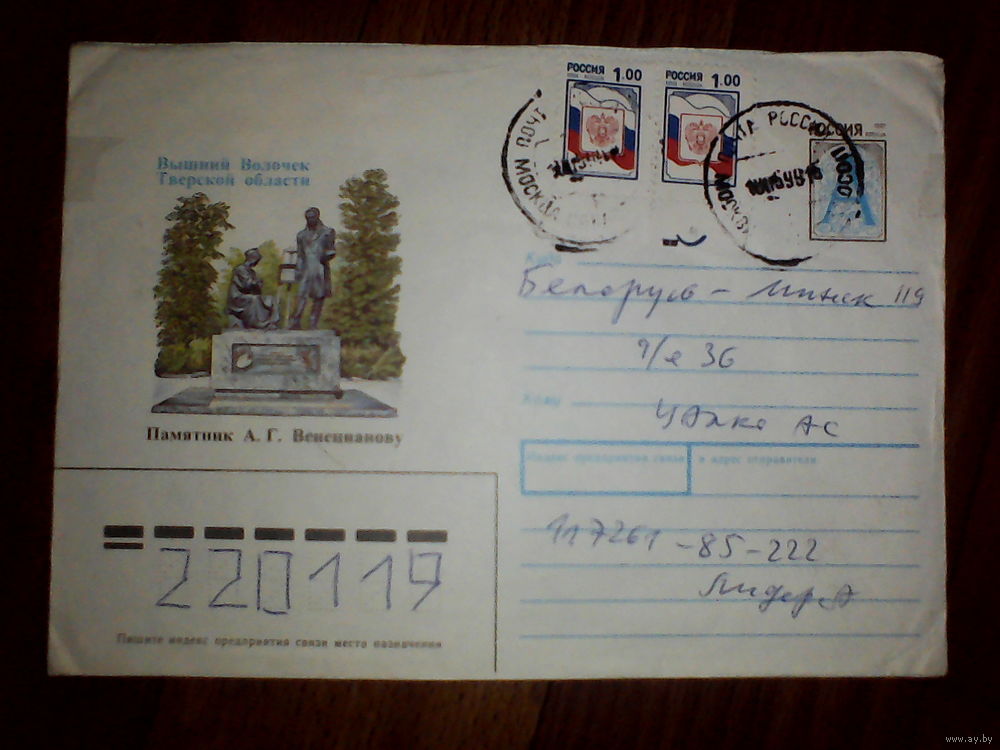 Вышний Волочек
Тверской области
Памятник А. Г. Венецианову
РОССИЯ 1.00
РОССИЯ 1.00
РОССИЯ
МОСКВА ПОЧТ
ПОЧТА РОССИИ
МОСКВА
Куда
Беларусь - Минск 119
а/я 36
Кому
АС
Индекс предприятия связи и адрес отправителя
117261-85-222
Лидер А
220119
Пишите индекс предприятия связи места назначения
www.ay.by